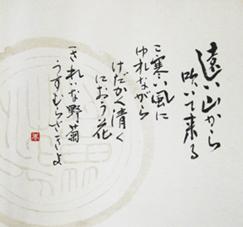 遠い山から
吹いて来る
こ寒い風に
ゆれながら
けだかく清く
におう花
きれいな野菊
うすむらさきよ